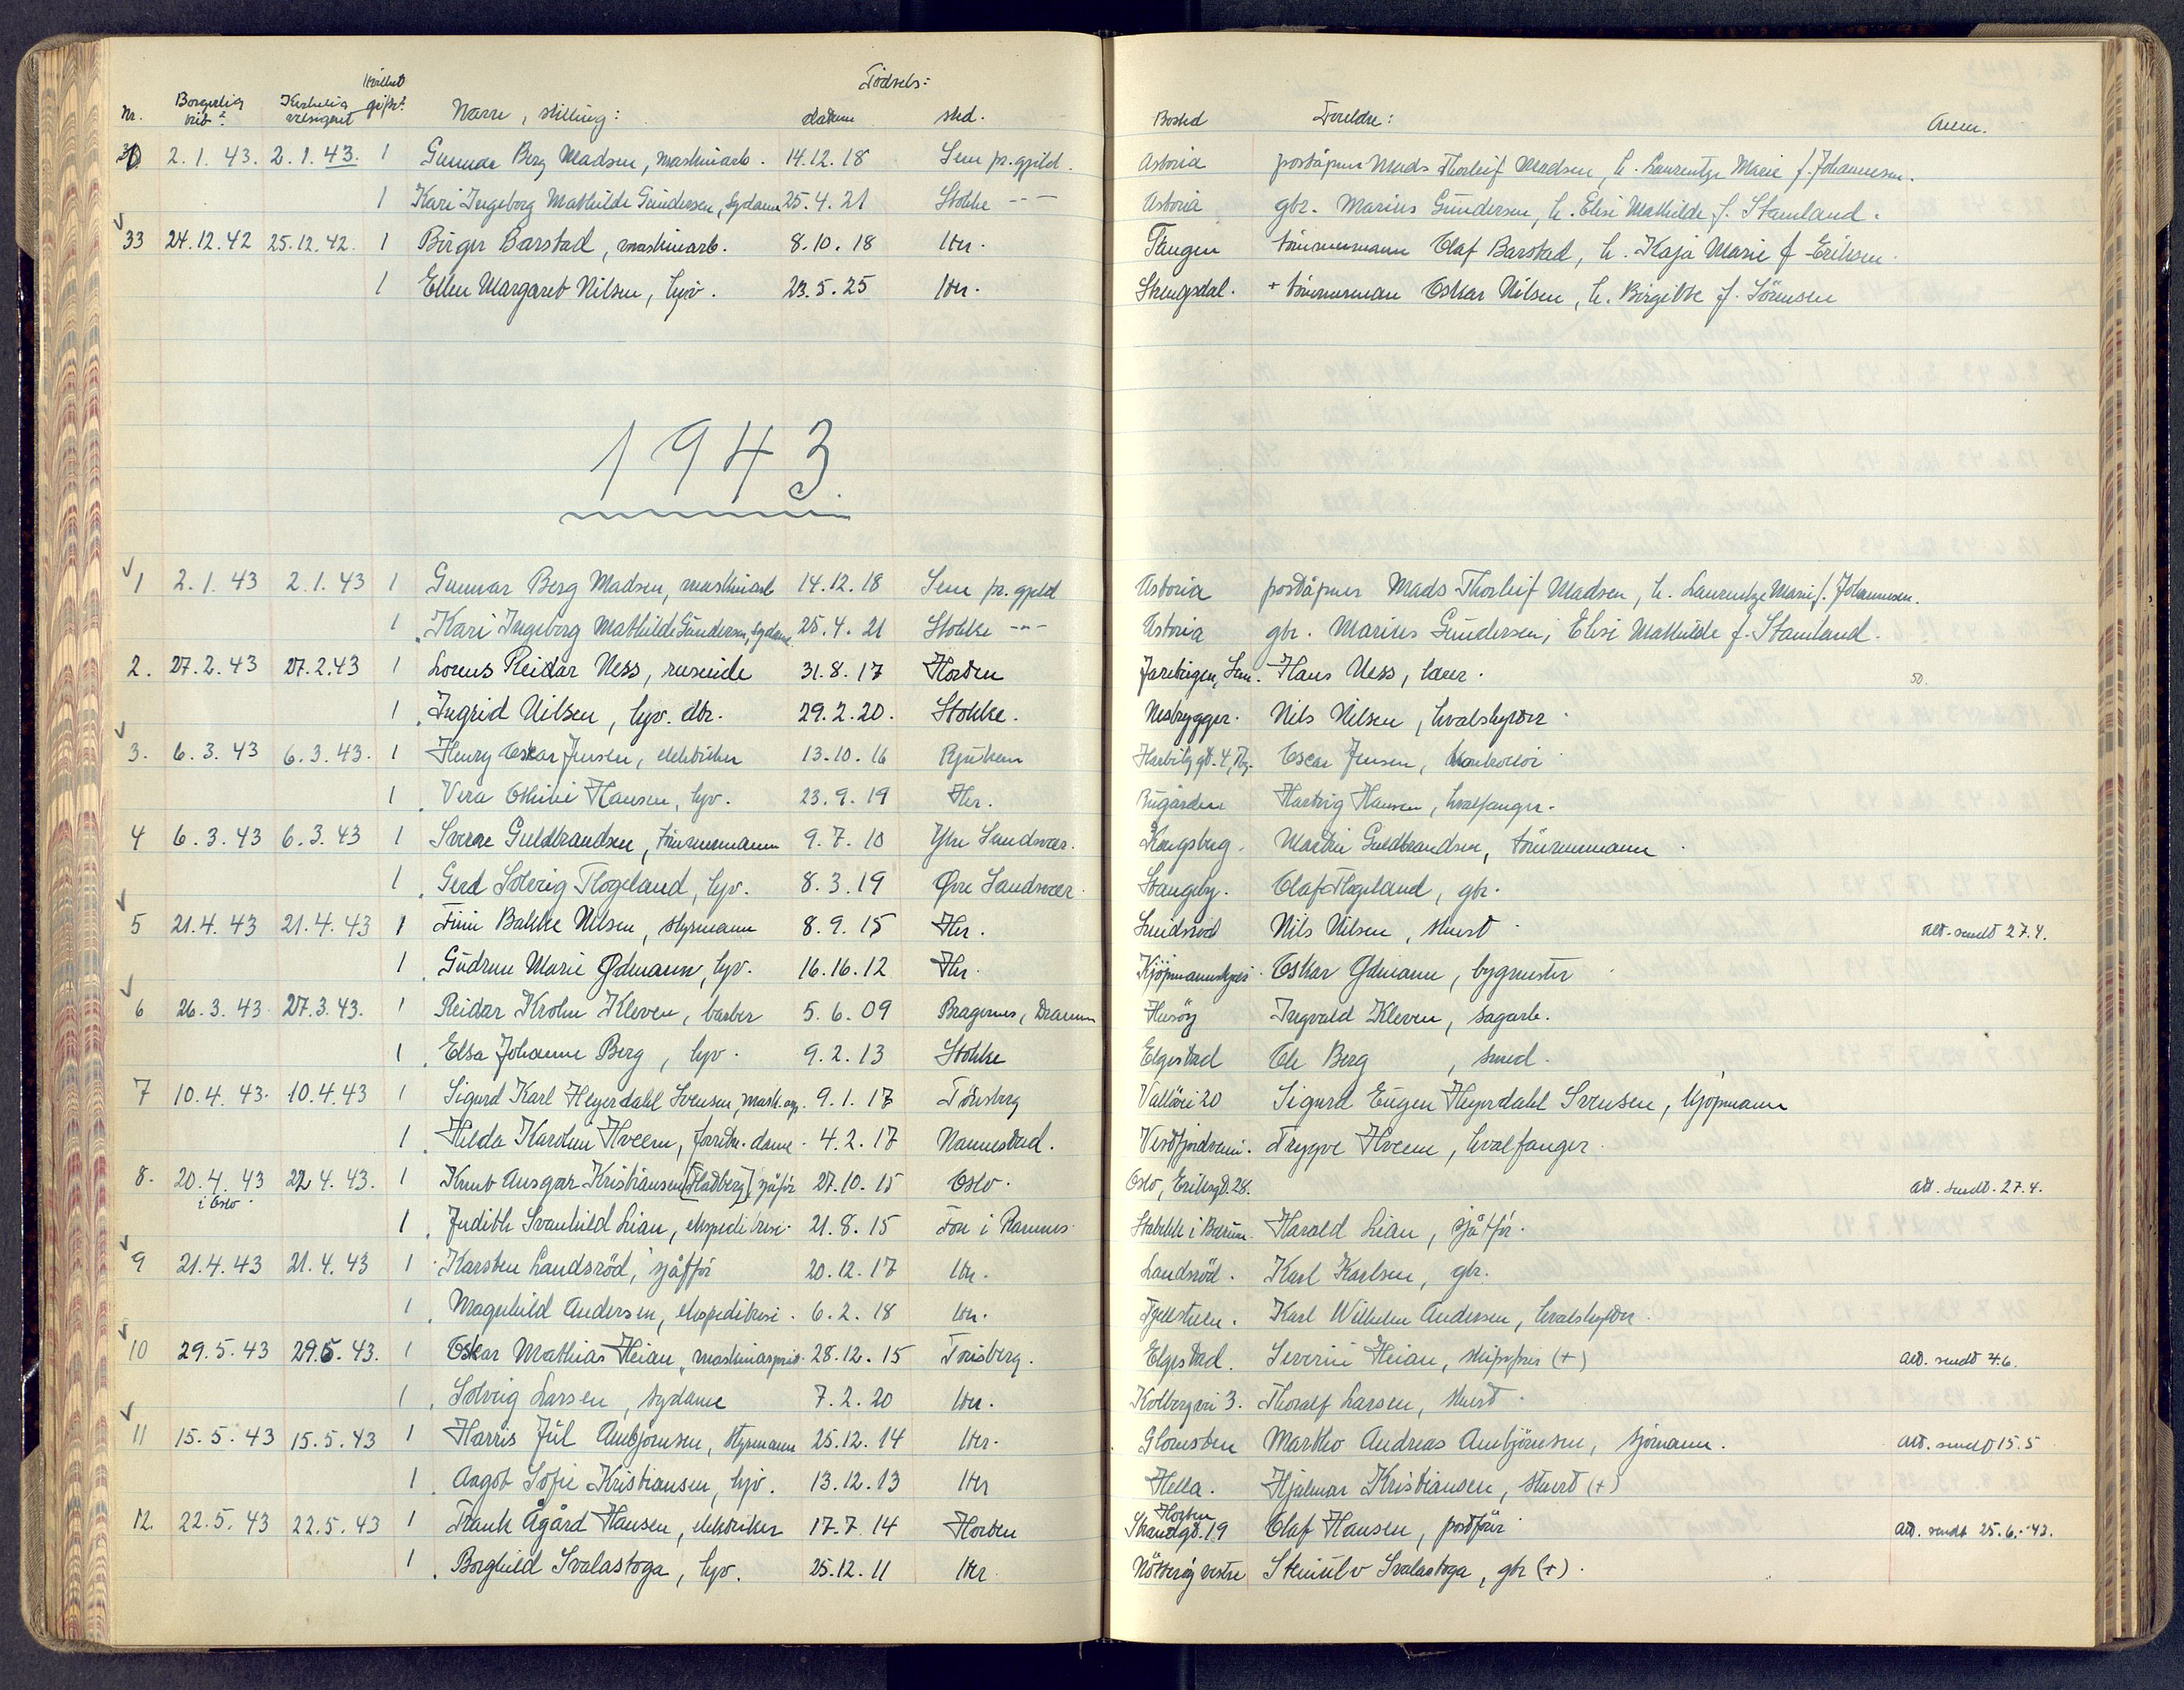 Nr. Borgerlig Kirkelig gift. Navn, stilling: Fødsels: datum sted. Bosted Foreldre: Anm.
2.1.43. 2.1.43. 1 Gunnar Berg Madsen, maskinarb. 14.12.18 Sem pr.gjeld. Astoria poståpner Mads Thorleif Madsen, h. Laurentze Marie f. Johannesen.
1 Kari Ingeborg Mathilde Gundersen, sydame 25.4.21 Stokke -"- Astoria gbr. Marius Gundersen, h. Elisi Mathilde f. Stamland.
33 24.12.42 25.12.42. 1 Birger Barstad, maskinarb. 8.10.18 Htr. Tangen tømmermann Olaf Barstad, h. Kaja Marie f. Eriksen.
1 Ellen Margaret Nilsen, hjv. 23.5.25 Htr. Strengsdal. + tømmerman Oskar Nilsen, h. Birgitte f. Sörensen
1943.
1 2.1.43 2.1.43 1 Gunnar Berg Madsen, maskinarb 14.12.18 Sem pr.gjeld Astoria poståpner Mads Thorleif Madsen, h. Laurentze Marie f. Johannesen.
1 Kari Ingeborg Mathilde Gundersen, sydame 25.4.21 Stokke -"- Astoria gbr. Marius Gundersen, Elisi Mathilde f. Stamland.
2. 27.2.43 27.2.43 1 Lorens Reidar Ness, reisende 31.8.17 Horten Sem. Hans Ness, lærer. 50.
1 Ingrid Nilsen, hjv. dtr. 29.2.20. Stokke. Nesbrygger. Nils Nilsen, hvalskytter.
3. 6.3.43 6.3.43. 1 Henry Oskar Jensen, elektriker 13.10.16 Rjukan gt. 4, Tbg. Oscar Jensen,
1 Vera Othilie Hansen, hjv. 23.9.19 Htr. Bugården Hartvig Hansen, hvalfanger.
4 6.3.43 6.3.43 1 Sverre Guldbrandsen, tømmermann 9.7.10 Ytre Sandsvær. Kongsberg. Martin Guldbrandsen, tømmermann.
1 Gerd Solveig Flogeland, hjv. 8.3.19 Øvre Sandsvær. Stangeby. Olaf Flogeland, gbr.
5 21.4.43 21.4.43 1 Finn Bakke Nilsen, styrmann 8.9.15 Htr. Smidsrød Nils Nilsen, stuert. Att. sendt 27.4.
1 Gudrun Marie Ødmann, hjv. 16.16.12 Htr. Oskar Ødmann, bygmester.
6 26.3.43 27.3.43. 1 Reidar Krohn Kleven, barber 5.6.09 Bragernes, Drammen Husöy Ingvald Kleven, sagarb.
1 Elsa Johanne Berg, hjv. 9.2.13 Stokke Elgestad Ole Berg, smed.
7 10.4.43. 10.4.43 1 Sigurd Karl Heyerdahl Svensen, 9.1.17 Tönsberg 20 Sigurd Eugen Heyerdahl Svensen, kjöpmann
1 Hilda Karoline Hveem, forretn. dame. 4.2.17 Nannestad. Vestfjordveien. Trygve Hveem, hvalfanger.
8. 20.4.43 22.4.43. 1 Knut Ansgar Kristiansen [Flatberg], sjåfør 27.10.15 Oslo. Oslo, Eriksgt. 28. Att. sendt. 27.4.
i Oslo.
1 Judith Svanhild Lian, ekspeditrise. 21.8.15 Fon i Ramnes. Stabekk i Bærum. Harald Lian, sjåffør.
9 21.4.43 21.4.43 1 Karsten Landsröd, sjåffør 20.12.17 Htr. Landsröd. Karl Karlsen, gbr.
1 Magnhild Andersen, ekspeditrise. 6.2.18 Htr. Karl Wilhelm Andersen, hvalskytter.
10 29.5.43 29.5.43. 1 Oskar Mathias Heian, 28.12.15 Tønsberg. Elgestad. Severin Heian, (+) Att. sendt 4.6.
1 Solveig Larsen, sydame 7.2.20 Htr. Kolbergvei 3. Thoralf Larsen, stuert.
11 15.5.43 15.5.43 1 Harris Jul Ambjörnsen, styrmann 25.12.14 Htr. Glomsten Martho Andreas Ambjörnsen, sjömann. Att. sendt 15.5
1 Aagot Sofie Kristiansen, hjv. 13.12.13 Htr Hella. Hjalmar Kristiansen, stuert (+)
12. 22.5.43 22.5.43 1 Frank Ågård Hansen, elektriker 17.7.14 Horten Horten Strandgt. 19 Olaf Hansen, postfører Att. sendt 25.6.-43.
1 Borghild Svalastoga, hjv. 25.12.11 Htr. Nötteröy vestre Steinulv Svalastoga, gbr (+).